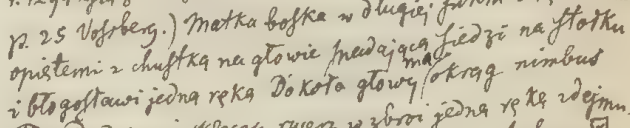 p. 25 Vossberg.) Matka boska w długiej
opiętemi z chustką na głowie spadającą siedzi na stołku
i błogosławi jedną ręką Dokoła głowy ma okrąg nimbus
w zbroi jedną ręką zdejmu